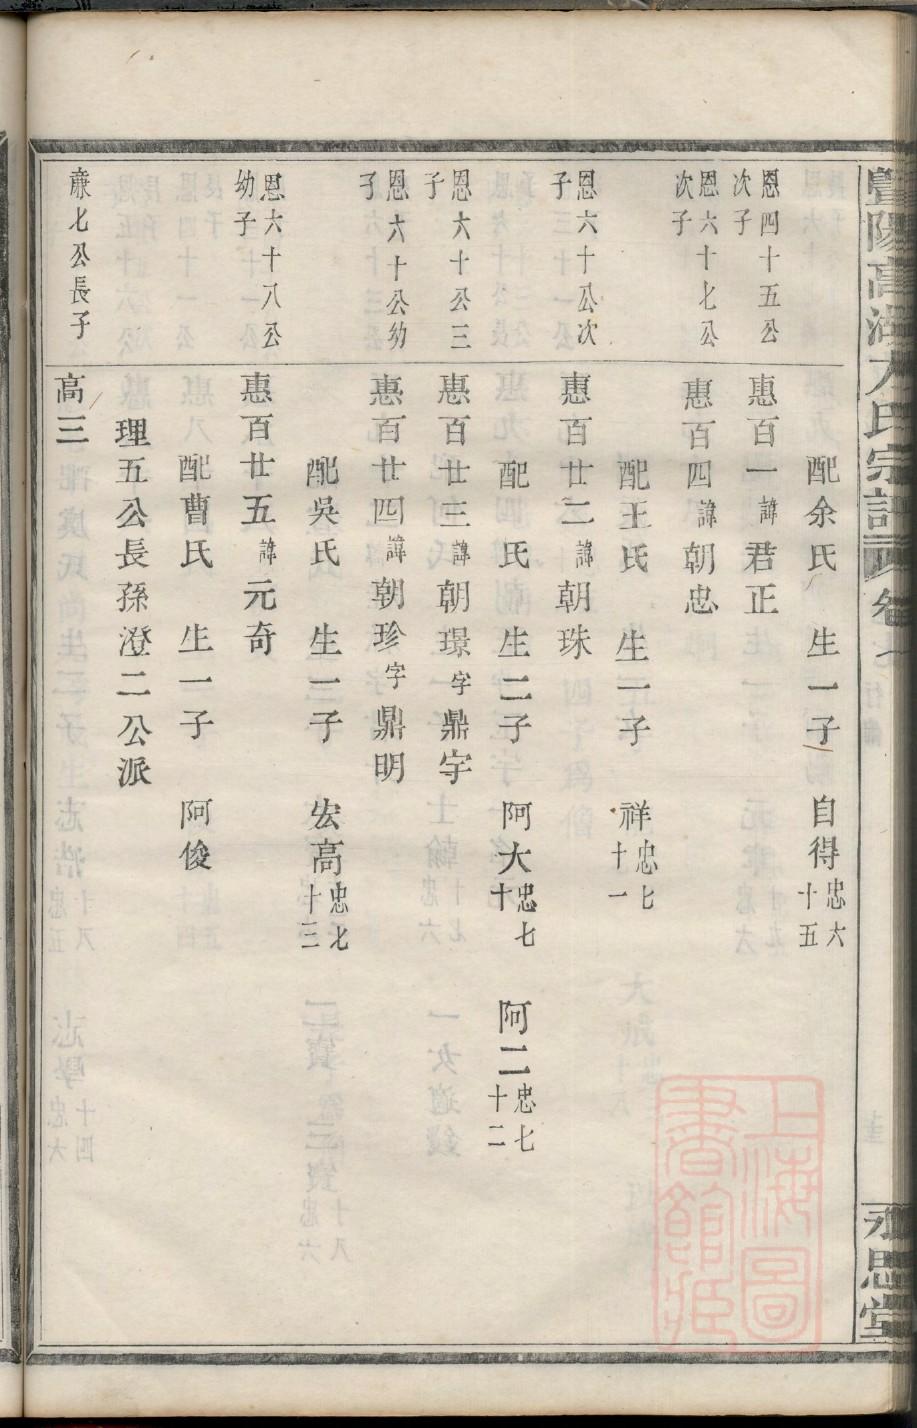 暨陽高湖方氏宗譜
卷
永思堂
配余氏 生一子 自得忠六十五
恩四十五公次子
惠百一諱君正
恩六十七公次子
惠百四諱朝忠
配王氏 生一子 祥忠七十一
恩六十公次子
惠百廿二諱朝珠
配 氏 生二子 阿大忠七十 阿二忠七十二
恩六十公三子
惠百廿三諱朝璟字鼎宇
恩六十公幼子
惠百廿四諱朝珍字鼎明
配吳氏 生一子 宏高忠七十三
恩六十八公幼子
惠百廿五諱元奇
配曹氏 生一子 阿俊
理五公長孫澄二公派
廉七公長子
高三
上海圖書館藏